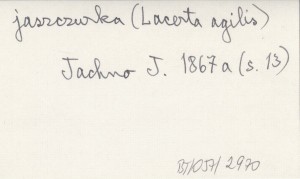 jaszczurka (Lacerta agilis)
Jachno J. 1867a (s. 13)
BJ/057/2970